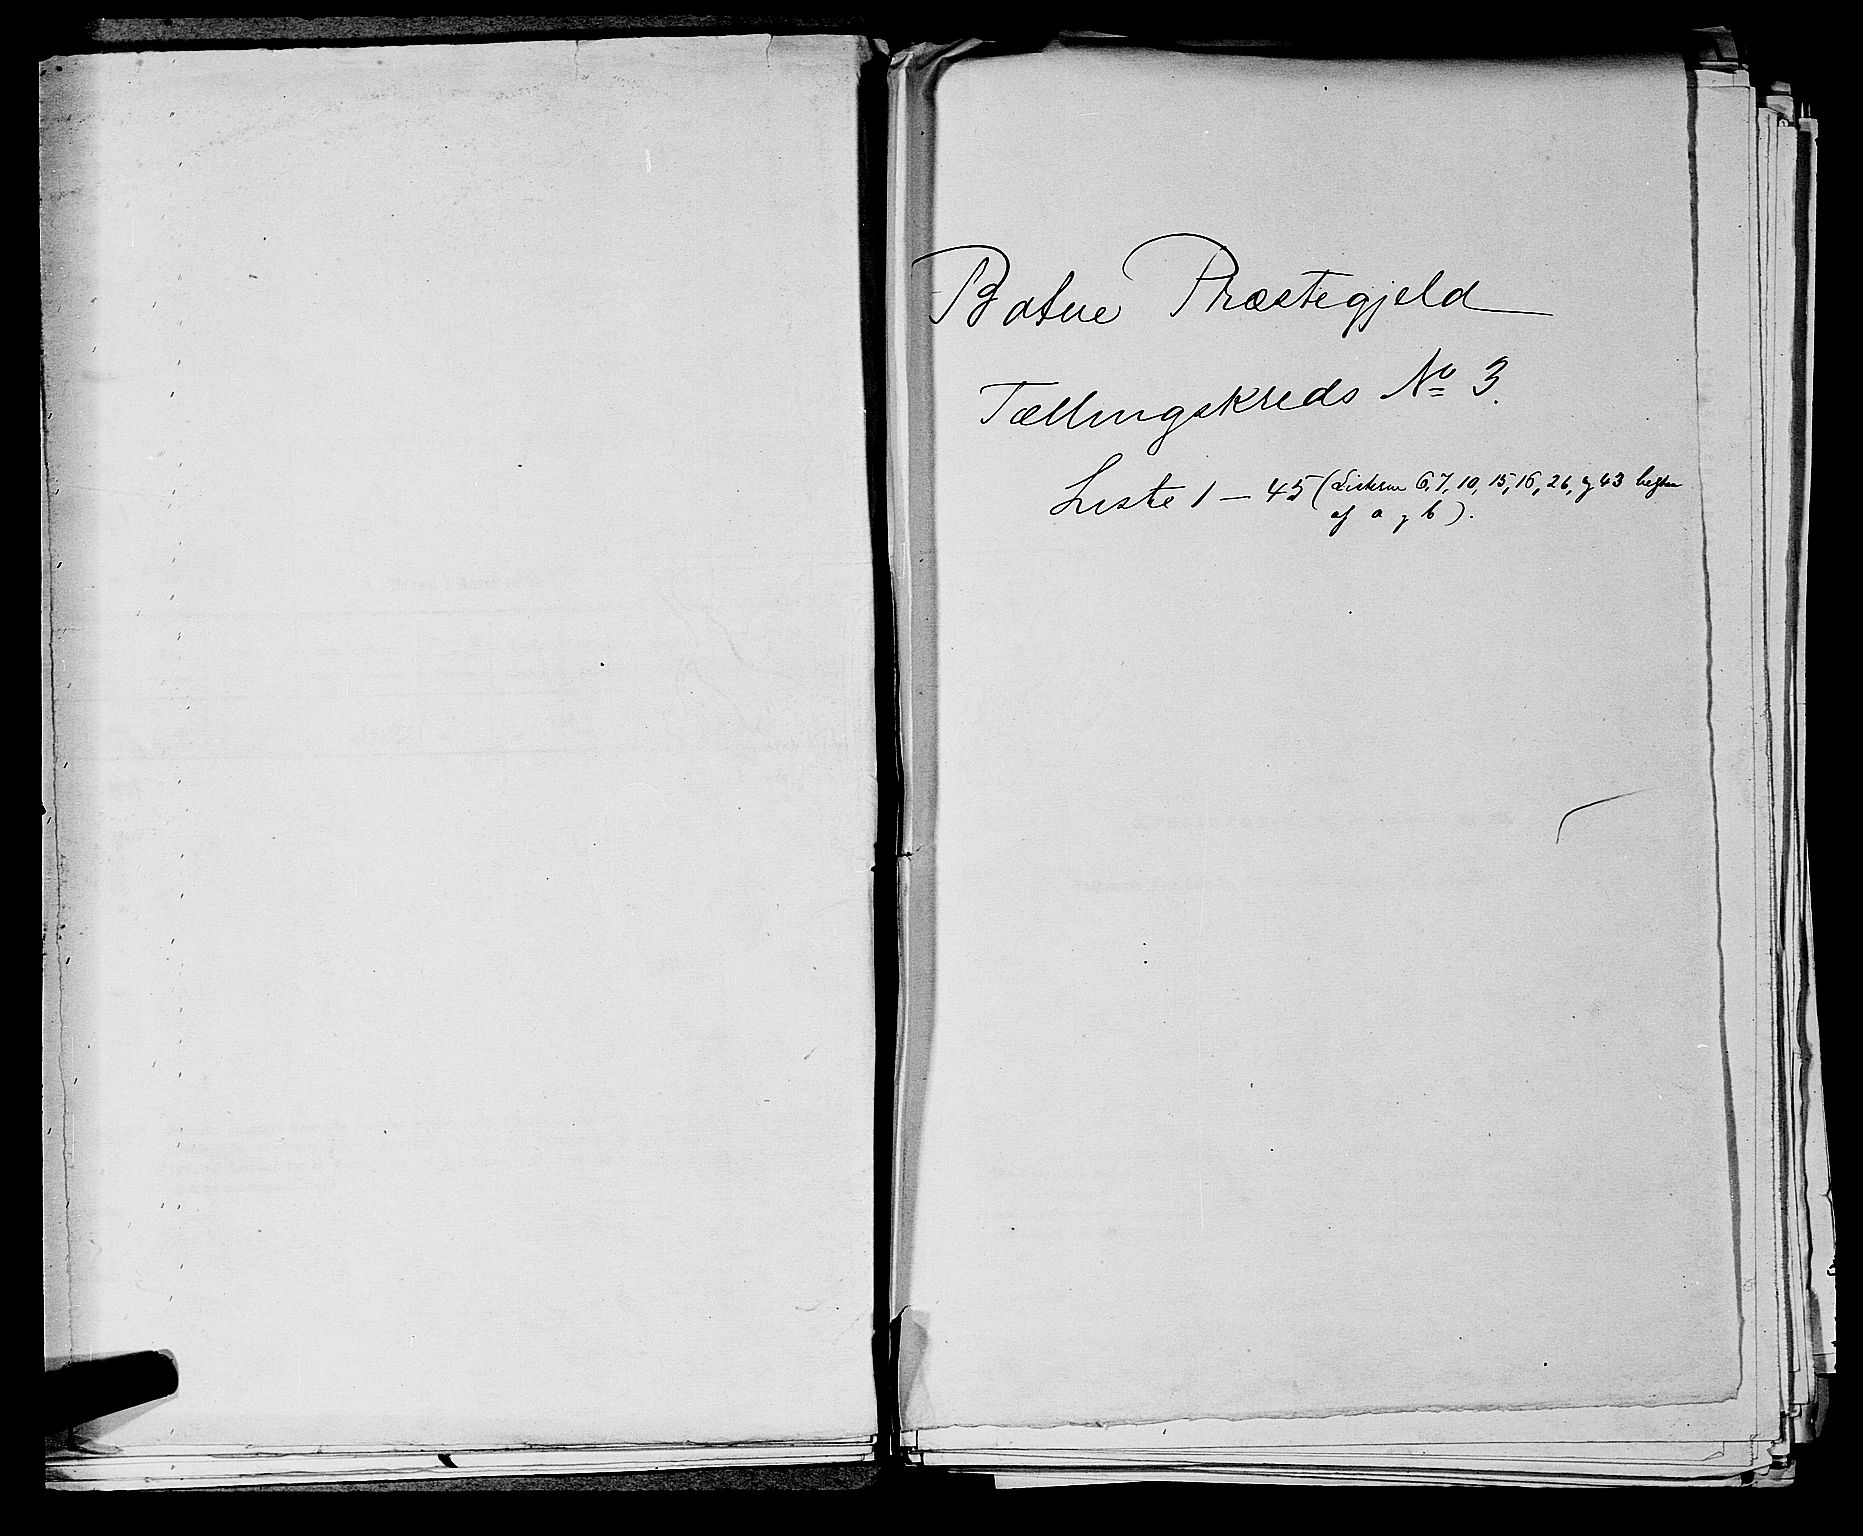 Botne Præstegjeld
Tællingskreds No 3.
Liste 1 — 45 (Listerne 6, 7, 10, 15, 16, 26, og 43 begge
af a og b).